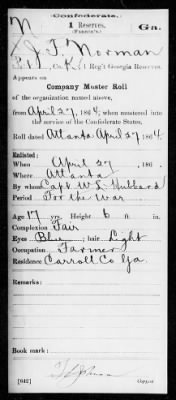 Confederate.
N
1 Reserves.
Ga.
J. T. Norman
Pvt, Co. K, 1 Reg't Georgia Reserves.
Appears on
Company Muster Roll
of the organization named above,
from April 27, 1864, when mustered into
the service of the Confederate States,
Roll dated Atlanta April 27, 1864
Enlisted:
When April 27, 186
Where Atlanta
By whom Capt W. L. Hubbard
Period For the War
Age 17 years Height 6 ft. in.
Complexion Fair
Eyes Blue; hair Light
Occupation Farmer
Residence Carroll Co Ga.
Remarks:
Book mark:
(642)
Copyist.